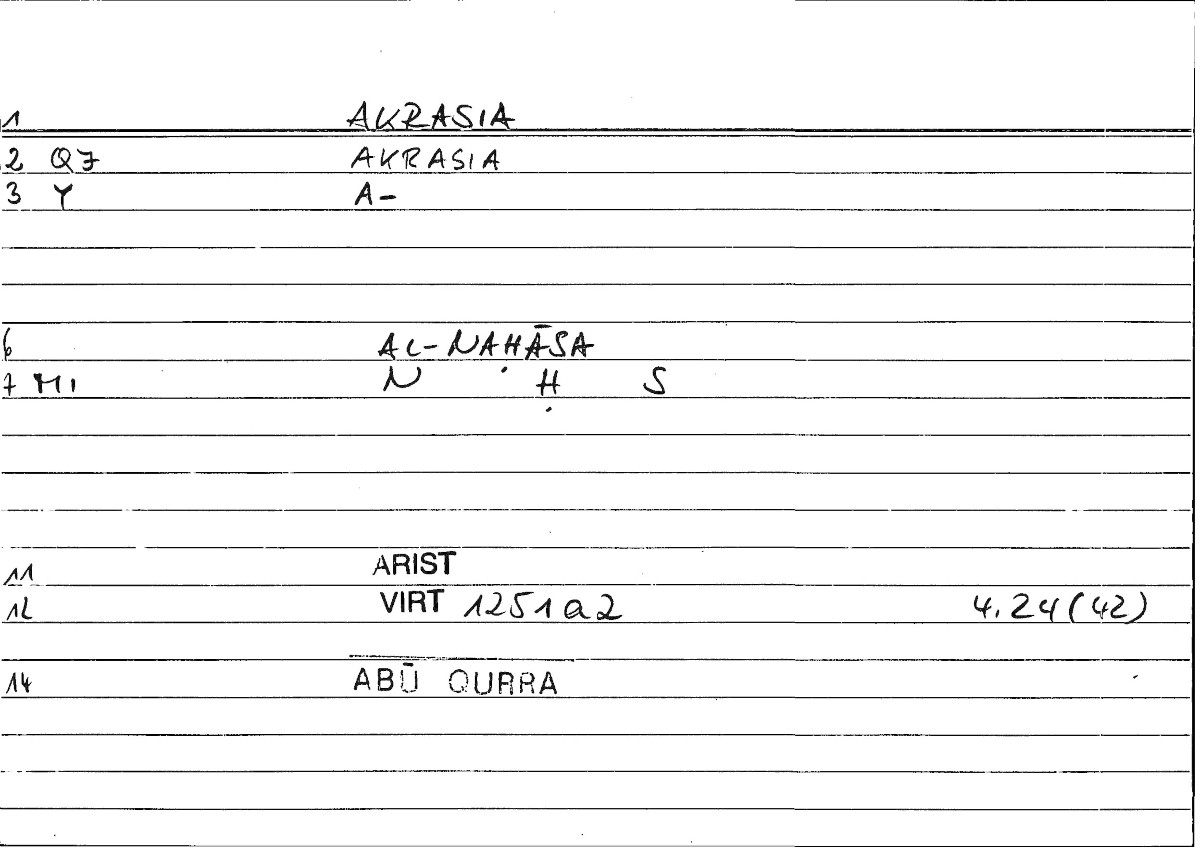 1 AKRASIA
2 Q7 AKRASIA
3 Y A-
6 AL-NAḤĀSA
7 MI N Ḥ S
11 ARIST
12 VIRT 1251a2 4.24(42)
14 ABŪ QURRA